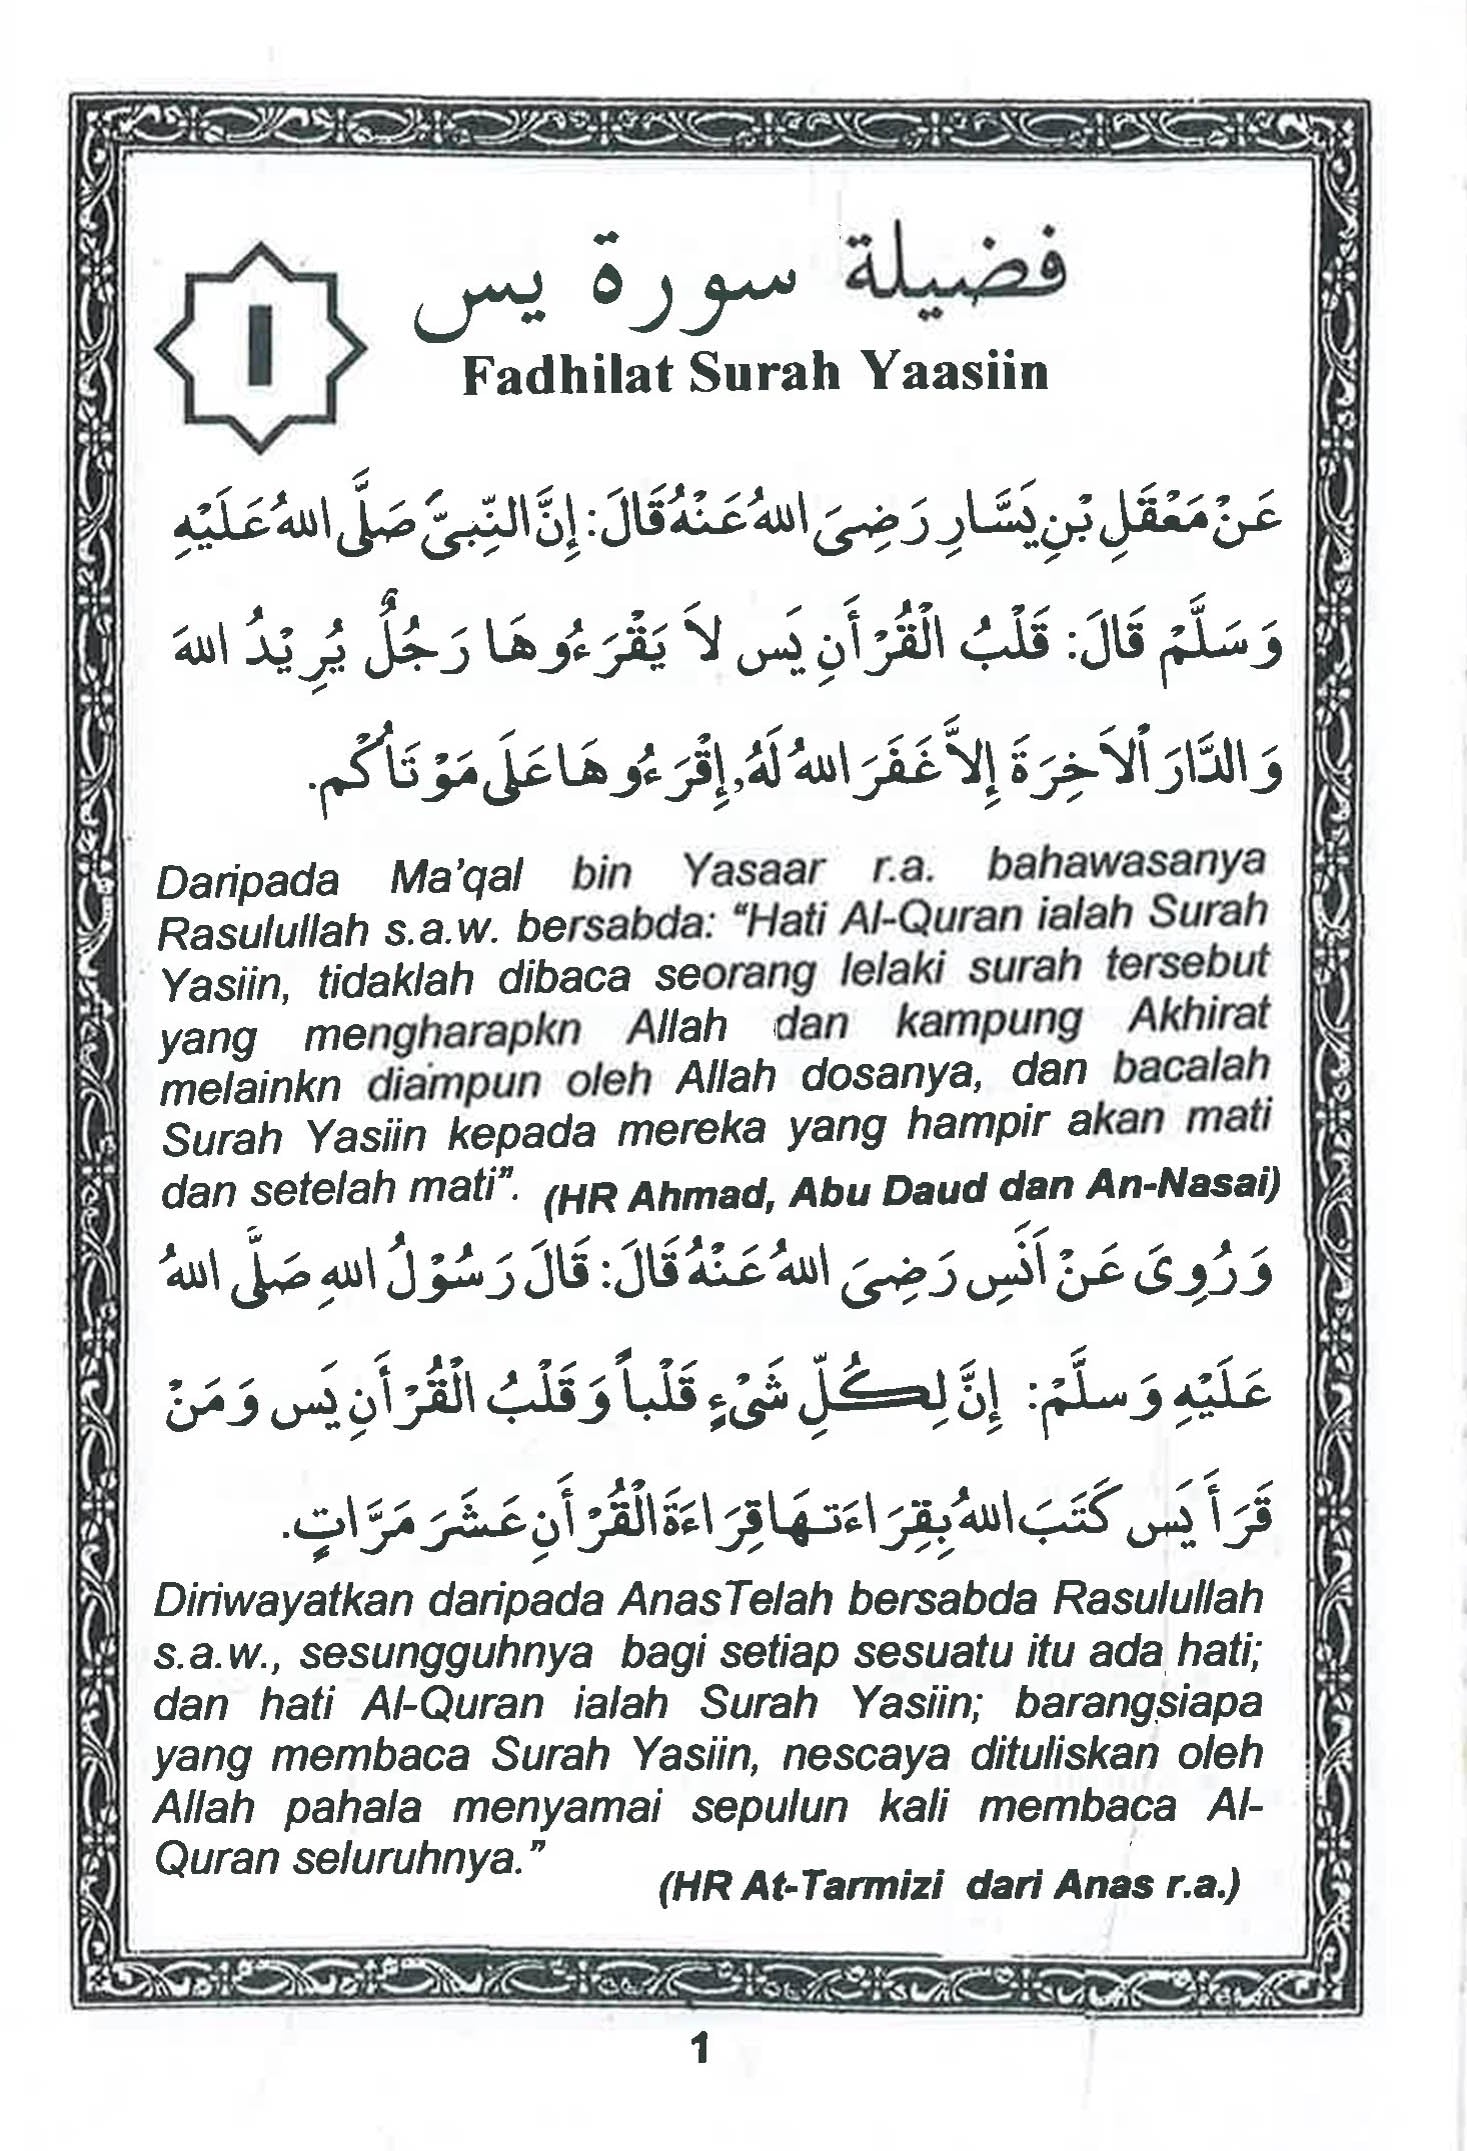 ١
فضيلة سورة يس
Fadhilat Surah Yaasiin
عَنْ مَعْقَلِ بْنِ يَسَّارِ رَضِىَ اللهُ عَنْهُ قَالَ: إِنَّ النَّبِىَّ صَلَّى اللهُ عَلَيْهِ
وَسَلَّمْ قَالَ: قَلْبُ الْقُرْأَنِ يَس لاَ يَقْرَءُوهَا رَجُلٌ يُرِيْدُ اللهَ
وَالدَّارَ اْلاَخِرَةَ إِلاَّ غَفَرَ اللهُ لَهُ، إِقْرَءُوهَا عَلَى مَوْتَاْكُم.
Daripada Ma'qal bin Yasaar r.a. bahawasanya
Rasulullah s.a.w. bersabda: “Hati Al-Quran ialah Surah
Yasiin, tidaklah dibaca seorang lelaki surah tersebut
yang mengharapkn Allah dan kampung Akhirat
melainkn diampun oleh Allah dosanya, dan bacalah
Surah Yasiin kepada mereka yang hampir akan mati
dan setelah mati”. (HR Ahmad, Abu Daud dan An-Nasai)
وَرُوِىَ عَنْ اَنَسِ رَضِىَ اللهُ عَنْهُ قَالَ: قَالَ رَسُوْلُ اللهِ صَلَّى اللهُ
عَلَيْهِ وَسلَّمْ: إِنَّ لِكُلِّ شَىْءٍ قَلْباً وَقَلْبُ الْقُرْأَنِ يَس وَمَنْ
قَرَأَ يَس كَتَبَ اللهُ بِقِرَاءَتِهَا قِرَاءَةَ الْقُرْأَنِ عَشَرَ مَرَّاتٍ.
Diriwayatkan daripada AnasTelah bersabda Rasulullah
s.a.w., sesungguhnya bagi setiap sesuatu itu ada hati;
dan hati Al-Quran ialah Surah Yasiin; barangsiapa
yang membaca Surah Yasiin, nescaya dituliskan oleh
Allah pahala menyamai sepulun kali membaca Al-
Quran seluruhnya.”
(HR At-Tarmizi dari Anas r.a.)
1